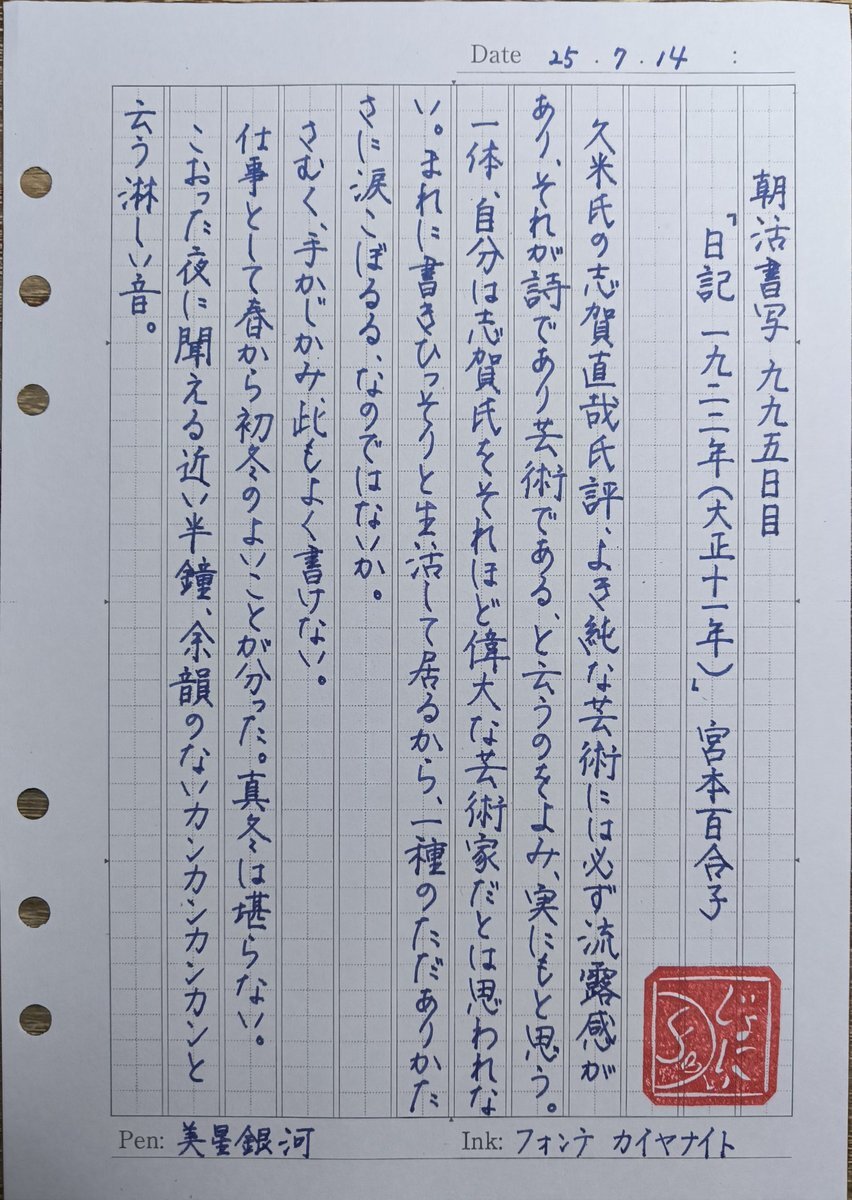 Date 25.7.14 :
朝活書写 九九五日目
「日記 一九二二年(大正十一年)」 宮本百合子
久米氏の志賀直哉氏評、よき純な芸術には必ず流露感が
あり、それが詩であり芸術である、と云うのをよみ、実にもと思う。
一体、自分は志賀氏をそれほど偉大な芸術家だとは思われな
い。まれに書きひっそりと生活して居るから、一種のただありかた
さに涙こぼるる、なのではないか。
さむく、手かじかみ、此もよく書けない。
仕事として春から初冬のよいことが分った。真冬は堪らない。
こおった夜に聞える近い半鐘、余韻のないカンカンカンカンと
云う淋しい音。
じょにぃ
Pen: 美星銀河
Ink: フォンテ カイヤナイト